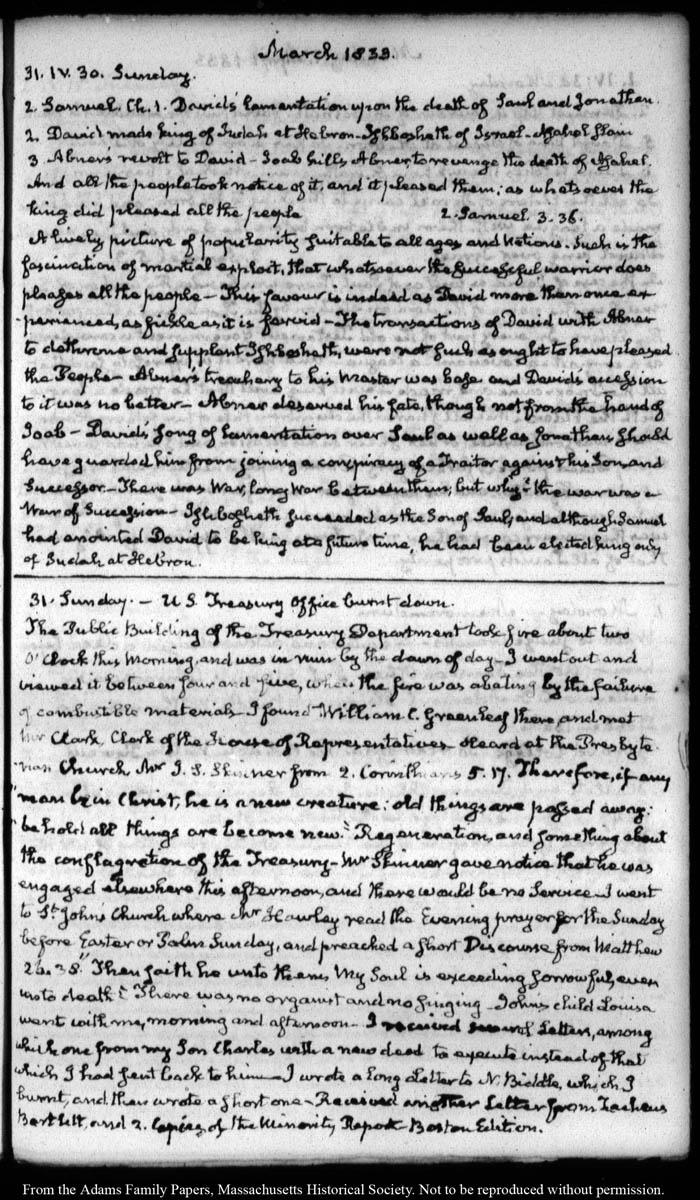 March 1833.
31. IV. 30. Sunday.
2. Samuel. Ch. 1. David's lamentation upon the death of Saul and Jonathan.
2. David made king of Judah at Hebron - Ishbosheth of Israel - Asahel slain
3. Abner's revolt to David - Joab kills Abner, to revenge the death of Asahel.
And all the people took notice of it, and it pleased them; as whatsoever the
king did pleased all the people 2. Samuel. 3. 36.
A lively picture of popularity suitable to all ages and Nations. Such is the
fascination of martial exploit, that whatsoever the successful warrior does
pleases all the people - This favour is indeed as David more than once ex-
-perienced, as fickle as it is fervid - The transactions of David with Abner
to dethrone and supplant Ishbosheth, were not such as ought to have pleased
the People - Abner's treachery to his Master was base and David's accession
to it was no better - Abner deserved his fate, though not from the hand of
Joab - David's song of lamentation over Saul as well as Jonathan should
have guarded him from joining a conspiracy of a Traitor against his Son, and
Successor - There was War, long War between them; but why? the war was a
War of Succession - Ishbosheth succeeded as the Son of Saul, and although Samuel
had anointed David to be king at a future time, he had been elected king only
of Judah at Hebron.
31. Sunday. - U S. Treasury Office burnt down.
The Public Building of the Treasury Department took fire about two
O'Clock this morning, and was in ruin by the dawn of day - I went out and
viewed it between four and five, when the fire was abating by the failure
of combustible materials - I found William C. Greenleaf there, and met
Mr Clark, Clerk of the House of Representatives - Heard at the Presbyte-
-rian Church, Mr J. S. Skinner from 2. Corinthians 5. 17. Therefore, if any
"man be in Christ, he is a new creature: old things are passed away:
"behold all things are become new." Regeneration, and something about
the conflagration of the Treasury - Mr Skinner gave notice that he was
engaged elsewhere this afternoon, and there would be no Service - I went
to St John's Church where Mr Hawley read the Evening prayer for the Sunday
before Easter or Palm Sunday, and preached a short Discourse from Matthew
26. 38. "Then saith he unto them, My Soul is exceeding sorrowful, even
unto death" There was no organist and no singing - John's child Louisa
went with me, morning and afternoon - I received several Letters, among
which one from my Son Charles with a new deed to execute instead of that
which I had sent back to him - I wrote a long Letter to N. Biddle, which I
burnt, and then wrote a short one - Received another Letter from Zacheus
Bartlett, and 2. Copies of the Minority Report - Boston Edition.
From the Adams Family Papers, Massachusetts Historical Society. Not to be reproduced without permission.